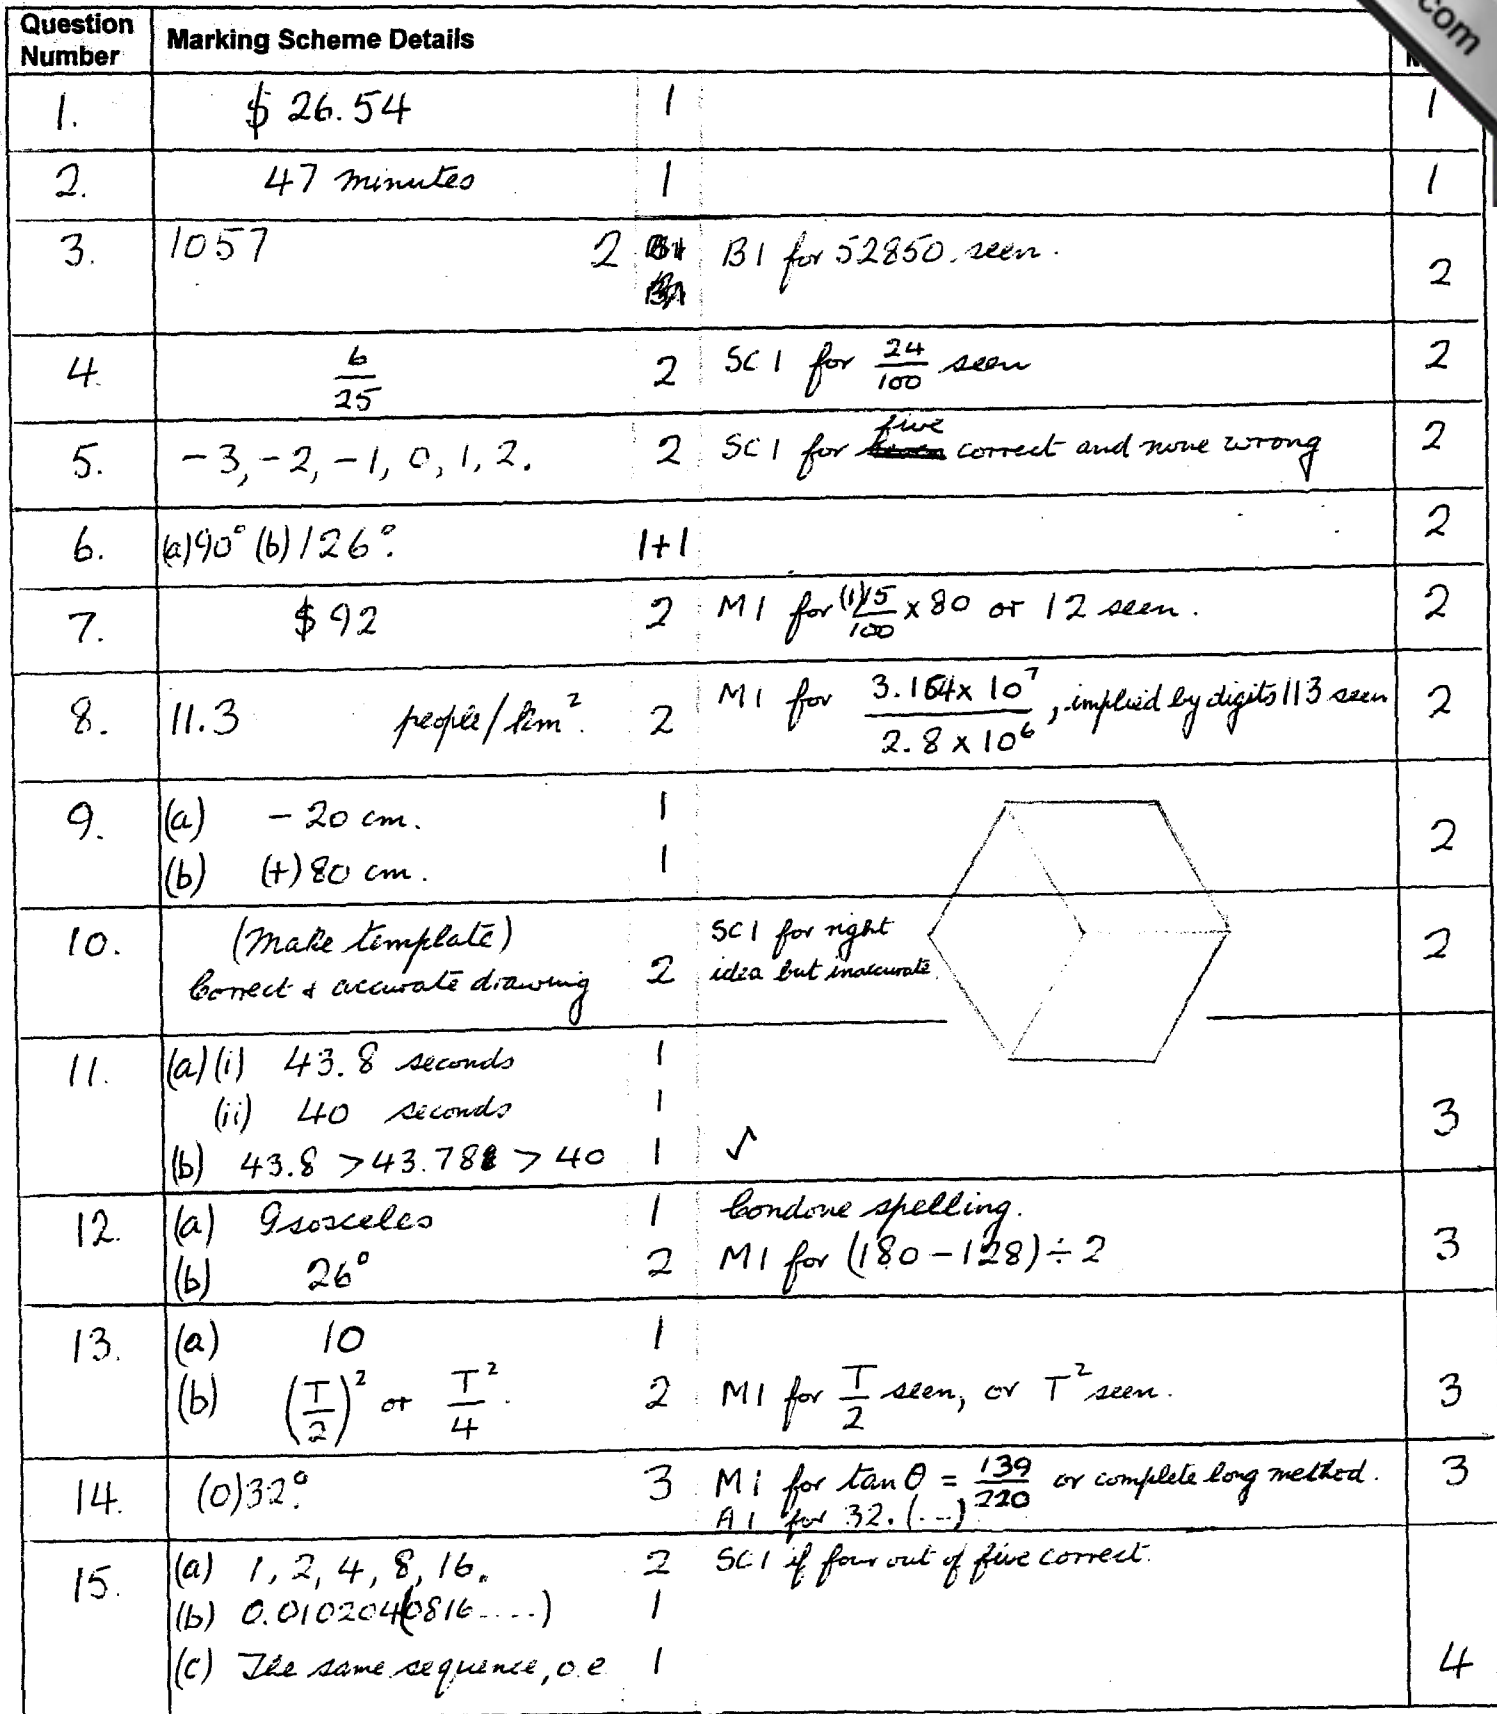 com
Question Number
Marking Scheme Details
1. $ 26.54 1 1
2. 47 minutes 1 1
3. 1057 2 B1 for 52850. seen. 2
4. 6/25 2 SC1 for 24/100 seen 2
5. -3, -2, -1, 0, 1, 2. 2 SC1 for five correct and none wrong 2
6. (a) 90° (b) 126°. 1+1 2
7. $ 92 2 M1 for (1)15/100 x 80 or 12 seen. 2
8. 11.3 people/km². 2 M1 for 3.164 x 10⁷ / 2.8 x 10⁶, implied by digits 113 seen 2
9. (a) - 20 cm. 1
(b) (+) 80 cm. 1 2
10. (Make template) SC1 for right
Correct & accurate drawing 2 idea but inaccurate. 2
11. (a) (i) 43.8 seconds 1
(ii) 40 seconds 1 3
(b) 43.8 > 43.78 > 40 1 √
12. (a) Isosceles 1 Condone spelling.
(b) 26° 2 M1 for (180 - 128) ÷ 2 3
13. (a) 10 1
(b) (T/2)² or T²/4. 2 M1 for T/2 seen, or T² seen. 3
14. (0)32°. 3 M1 for tan θ = 139/220 or complete long method. 3
A1 for 32.(...)
15. (a) 1, 2, 4, 8, 16. 2 SC1 if four out of five correct.
(b) 0.0102040816....) 1
(c) The same sequence, o.e 1 4